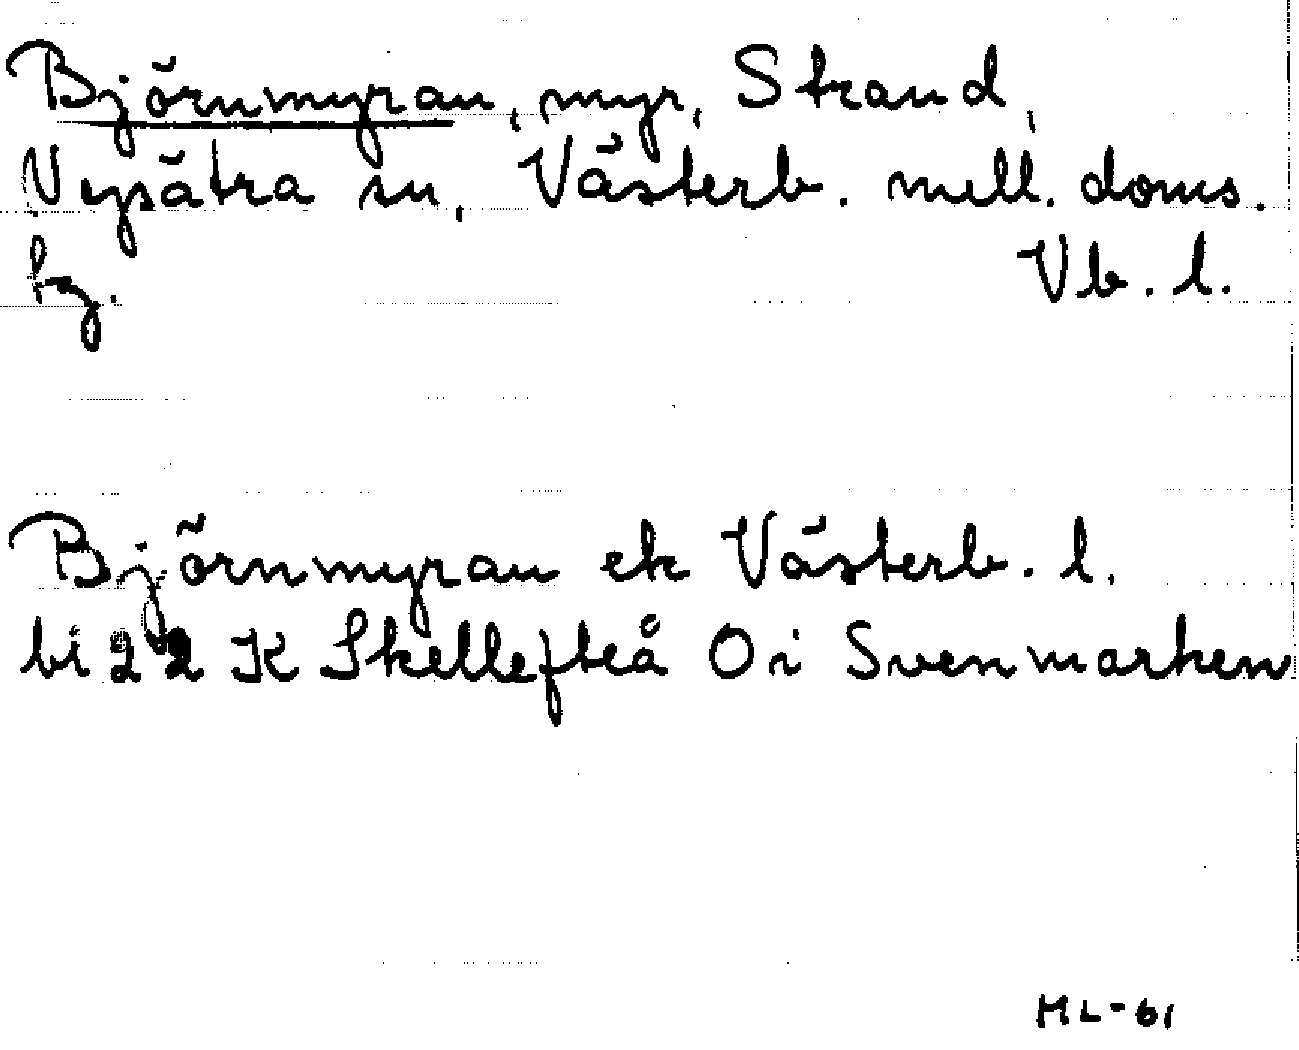 Björnmyran, myr, Strand,
Nysätra sn, Västerb. mell. doms.
fg. Vb. l.
Björnmyran ek Västerb. l.
bl 22 K Skellefteå O i Svenmarken
ML-61